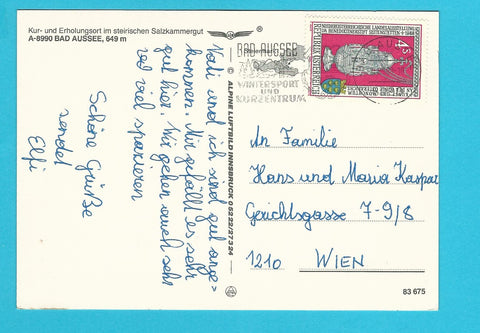 Kur- und Erholungsort im steirischen Salzkammergut
A-8990 BAD AUSSEE, 649 m
Vati und ich sind gut ange=
kommen. Mir gefällt es sehr
gut hier. Wir gehen auch sehr
viel spazieren
Schöne Grüße
sendet
Elfi
© ALPINE LUFTBILD INNSBRUCK 0 52 22 / 27 3 24
BAD AUSSEE
WINTERSPORT
UND
KURZENTRUM
NIEDERÖSTERREICHISCHE LANDESAUSSTELLUNG
REPUBLIK ÖSTERREICH
S 4
An Familie
Hans und Maria Kaspar
Gerichtsgasse 7-9/8
1210 WIEN
83 675